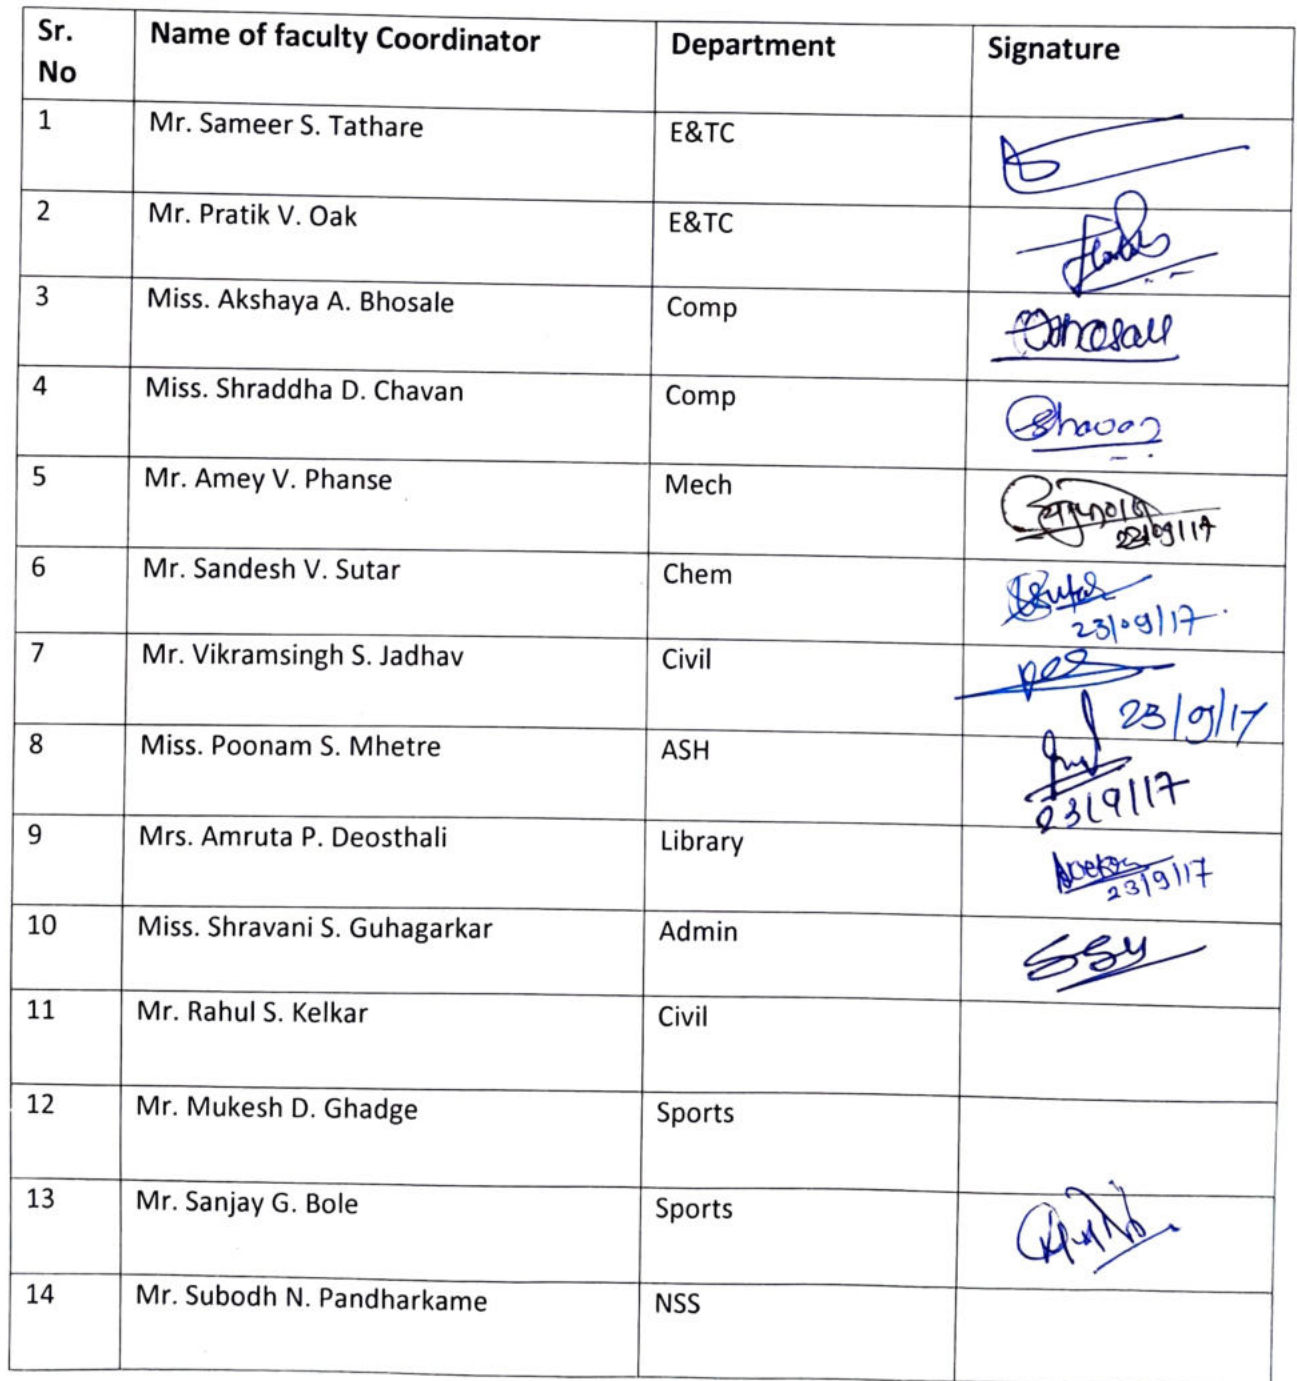 Sr. No Name of faculty Coordinator Department Signature
1 Mr. Sameer S. Tathare E&TC
2 Mr. Pratik V. Oak E&TC
3 Miss. Akshaya A. Bhosale Comp
4 Miss. Shraddha D. Chavan Comp
5 Mr. Amey V. Phanse Mech
22/09/17
6 Mr. Sandesh V. Sutar Chem
23/09/17
7 Mr. Vikramsingh S. Jadhav Civil
23/09/17
8 Miss. Poonam S. Mhetre ASH
23/9/17
9 Mrs. Amruta P. Deosthali Library
23/9/17
10 Miss. Shravani S. Guhagarkar Admin
11 Mr. Rahul S. Kelkar Civil
12 Mr. Mukesh D. Ghadge Sports
13 Mr. Sanjay G. Bole Sports
14 Mr. Subodh N. Pandharkame NSS